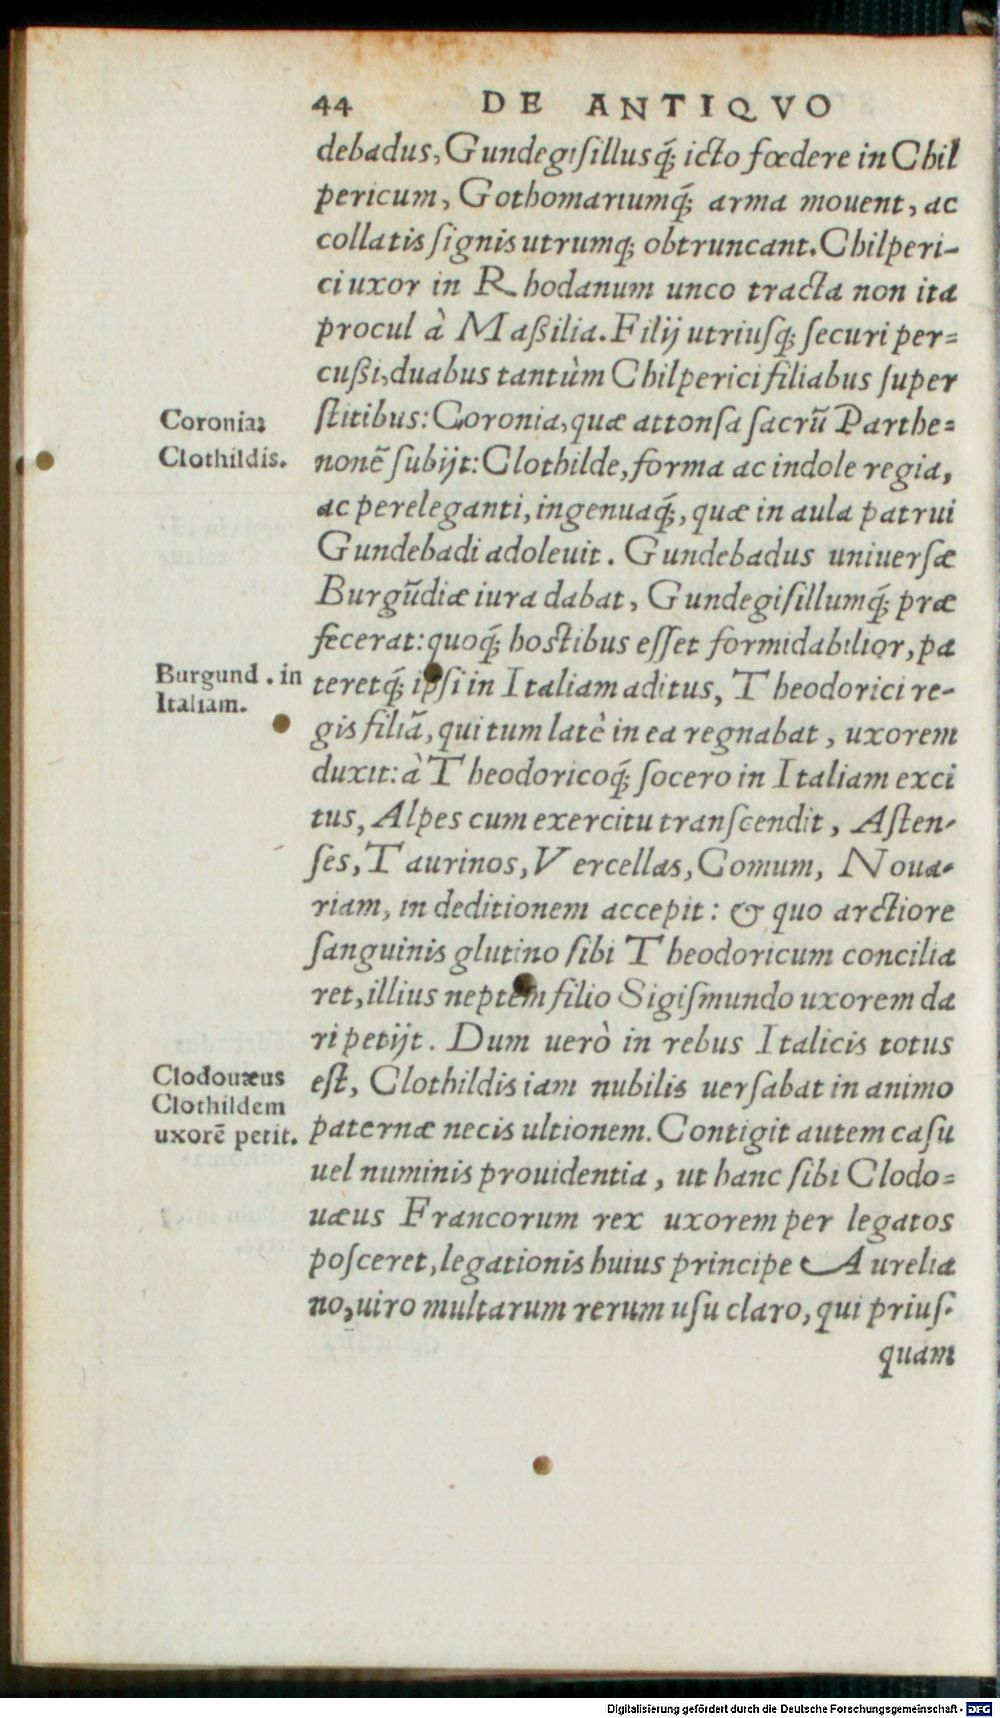 44 DE ANTIQVO
debadus, Gundegisillusq́; icto fœdere in Chil
pericum, Gothomariumq́; arma mouent, ac
collatis signis utrumq; obtruncant. Chilperi-
ci uxor in Rhodanum unco tracta non ita
procul à Maßilia. Filij utriusq; securi per=
cußi, duabus tantùm Chilperici filiabus super
Coronia;
stitibus: Coronia, quæ attonsa sacrũ Parthe=
Clothildis.
nonẽ subijt: Clothilde, forma ac indole regia,
ac pereleganti, ingenuaq́;, quæ in aula patrui
Gundebadi adoleuit. Gundebadus uniuersæ
Burgũdiæ iura dabat, Gundegisillumq́; præ
fecerat: quoq́; hostibus esset formidabilior, pa
Burgund. in
Italiam.
teretq́; ipsi in Italiam aditus, Theodorici re-
gis filiã, qui tum latè in ea regnabat, uxorem
duxit: à Theodoricoq́; socero in Italiam exci
tus, Alpes cum exercitu transcendit, Asten-
ses, Taurinos, Vercellas, Comum, Noua-
riam, in deditionem accepit: & quo arctiore
sanguinis glutino sibi Theodoricum concilia
ret, illius neptem filio Sigismundo uxorem da
ri petijt. Dum uerò in rebus Italicis totus
Clodouæus
Clothildem
uxorẽ petit.
est, Clothildis iam nubilis uersabat in animo
paternæ necis ultionem. Contigit autem casu
uel numinis prouidentia, ut hanc sibi Clodo=
uæus Francorum rex uxorem per legatos
posceret, legationis huius principe Aurelia
no, uiro multarum rerum usu claro, qui prius-
quam
Digitalisierung gefördert durch die Deutsche Forschungsgemeinschaft - DFG